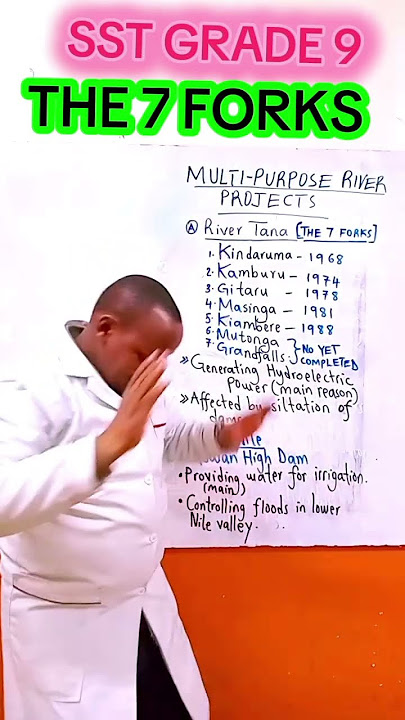 SST GRADE 9
THE 7 FORKS
MULTI-PURPOSE RIVER
PROJECTS
Ⓐ River Tana [THE 7 FORKS]
1. Kindaruma - 1968
2. Kamburu - 1974
3. Gitaru - 1978
4. Masinga - 1981
5. Kiambere - 1988
6. Mutonga } NO YET
7. Grandfalls } COMPLETED
» Generating Hydroelectric
Power (main reason)
» Affected by siltation of
High Dam
• Providing water for irrigation.
(main)
• Controlling floods in lower
Nile valley.